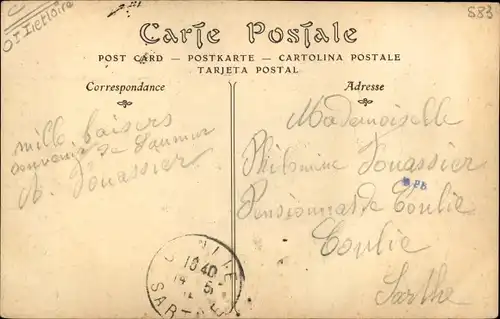 583
Carte Postale
POST CARD — POSTKARTE — CARTOLINA POSTALE
TARJETA POSTAL
Correspondance
Adresse
mille baisers
souvenir de Saumur
Jouassier
Mademoiselle
Philomine Jouassier
Pensionnat de Conlie
Conlie
Sarthe
18 40
5
SARTHE